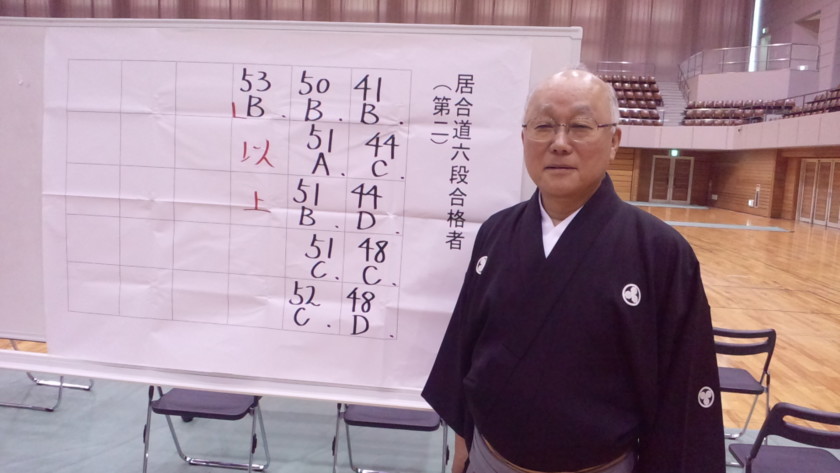 居合道六段合格者
（第二）
41
B.
44
C.
44
D.
48
C.
48
D.
50
B.
51
A.
51
B.
51
C.
52
C.
53
B.
以
上